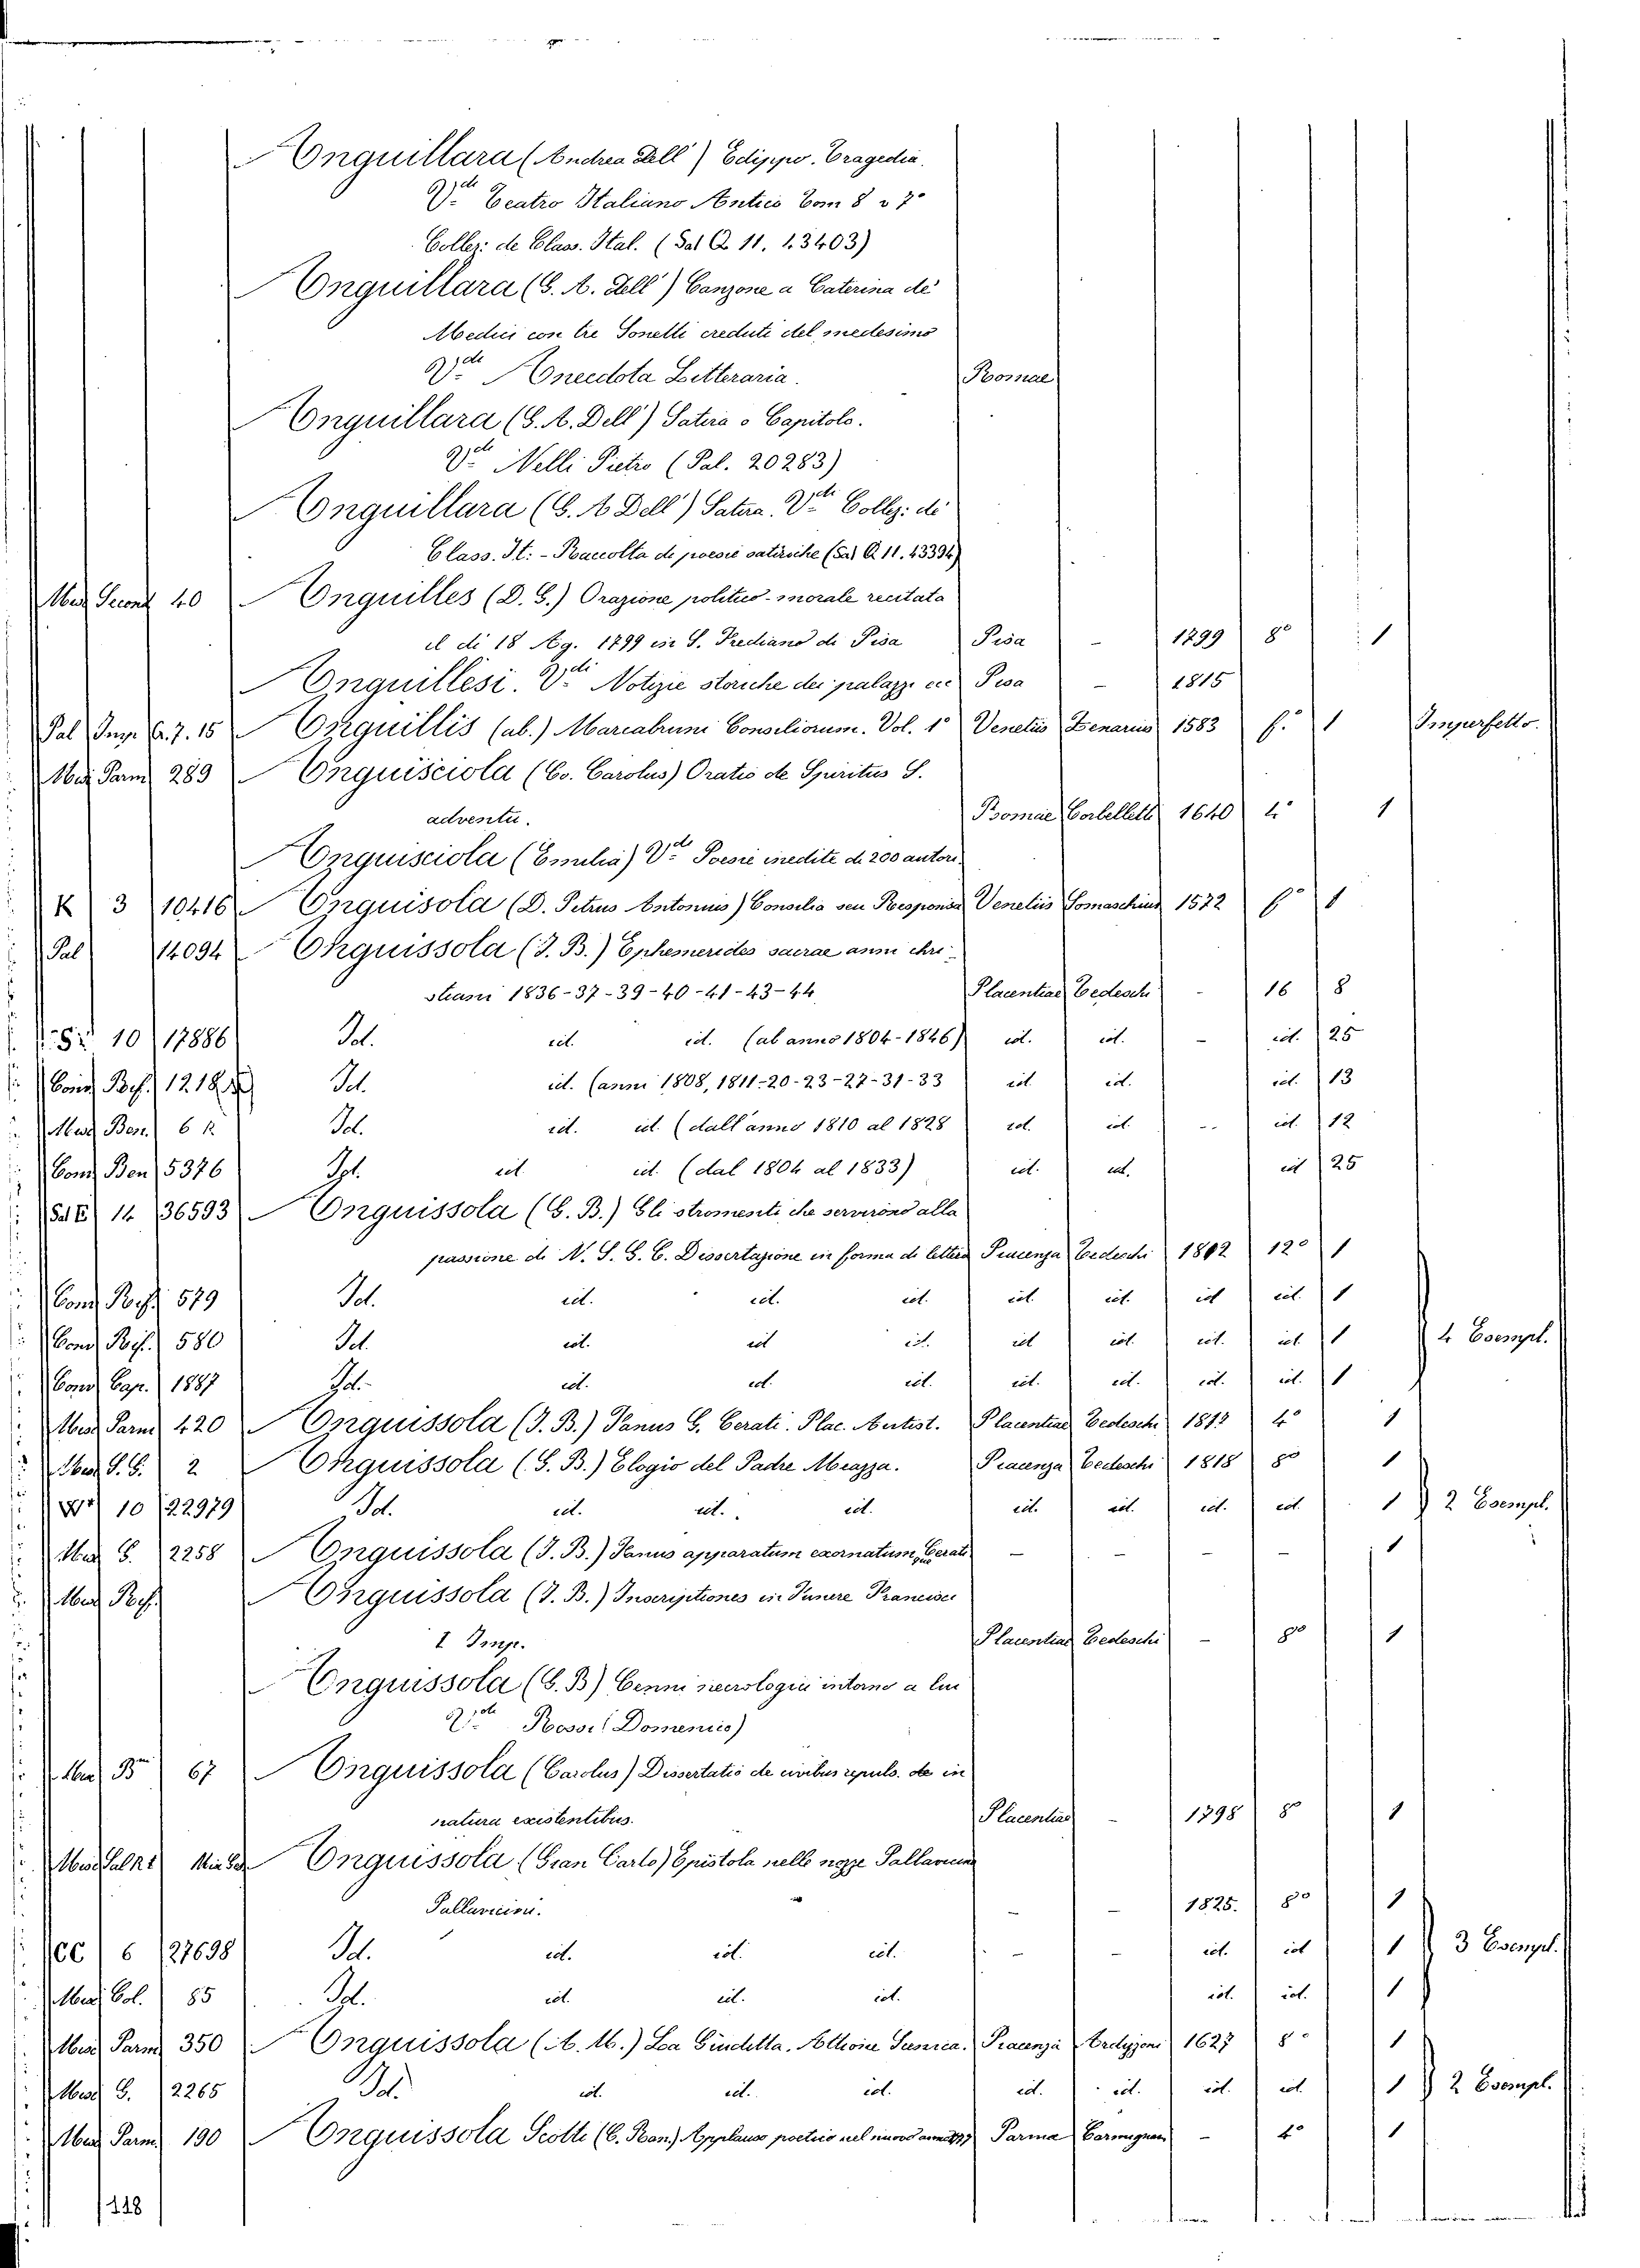 Anguillara (Andrea Dell') Edippo. Tragedia.
V.de Teatro Italiano Antico Tom 8 e 7º
Collez: de Class. Ital. (Sal Q 11. 43403)
Anguillara (G. A. Dell') Canzone a Caterina de'
Medici con tre Sonetti creduti del medesimo
V.de Anecdota Litteraria. Romae
Anguillara (G. A. Dell') Satira o Capitolo.
V.de Nelli Pietro (Pal. 20283)
Anguillara (G. A Dell') Satira. V.de Collez: di
Class. It: - Raccolta di poesie satiriche (Sal Q. 11. 43394)
Misc 40 Anguilles (D. G.) Orazione politico-morale recitata
il di 18 Ag. 1799 in S. Frediano di Pisa Pisa - 1799 8º 1
Anguillesi. V.di Notizie storiche dei palazzi ecc Pisa - 1815
Pal Imp. 6. 7. 15 Anguillis (ab.) Marcabruni Consiliorum. Vol. 1º Venetiis Zenarius 1583 f.º 1 Imperfetto.
Mis Parm 289 Anguisciola (Co. Carolus) Oratio de Spiritus S.
adventu. Romae Corbelletti 1640 4º 1
Anguisciola (Emilia) V.de Poesie inedite di 200 autori
K 3 10416 Anguisola (D. Petrus Antonius) Consilia seu Responsa Venetiis Somaschius 1572 fº 1
Pal 14094 Anguissola (J. B.) Ephemerides sacrae anni chri-
stiani 1836-37-39-40-41-43-44 Placentiae Tedeschi - 16 8
10 17886 Id. id. id. (ab anno 1804-1846) id. id. - id. 25
Id. id. (anni 1808, 1811-20-23-27-31-33 id. id. id. 13
Misc Ben. 6 Id. id. id. (dall'anno 1810 al 1828 id. id. - id. 12
Com Ben 5376 Id. id id. (dal 1804 al 1833) id. id. id 25
Sal E 14 36593 Anguissola (G. B.) Gli stromenti che servirono alla
passione di N. S. G. C. Dissertazione in forma di lettera Piacenza Tedeschi 1842 12º 1
579 Id. id. id. id. id. id. id id. 1
580 Id. id. id id. id id. id. id. 1 4 Esempl.
Cap. 1887 Id. id. id. id. id. id. id. id. 1
Misc Parm 420 Anguissola (J. B.) Fanus G. Cerati. Plac. Antist. Placentiae Tedeschi 4º 1
Misc. S. G. 2 Anguissola (G. B.) Elogio del Padre Meazza. Piacenza Tedeschi 1818 8º 1
10 22979 Id. id. id. id. id. id. id. id. 1 2 Esempl.
Misc G. 2258 Anguissola (J. B.) Fanus apparatum exornatum, Cerati - - - - 1
Anguissola (J. B.) Inscriptiones in Funere Francisci
I Imp. Placentiae Tedeschi - 8º 1
Anguissola (G. B) Cenni necrologici intorno a lui
V.de Rossi (Domenico)
67 Anguissola (Carolus) Dissertatio de viribus repuls. de in
natura existentibus. Placentiae - 1798 8º 1
Anguissola (Gian Carlo) Epistola nelle nozze Pallavicini
Pallavicini. - - 1825. 8º 1
CC 6 27698 Id. id. id. id. - - id. id 1 3 Esempl.
Misc Col. 85 Id. id. id. id. id. id. 1
Misc Parm 350 Anguissola (A. M.) La Giuditta. Attione Scenica. Piacenza Ardizzoni 1627 8º 1
Misc G. 2265 Id. id. id. id. id. id. id. id. 1 2 Esempl.
Misc Parm. 190 Anguissola Scotti (C. Ran.) Applauso poetico nel nuovo Parma Carmignani - 4º 1
118